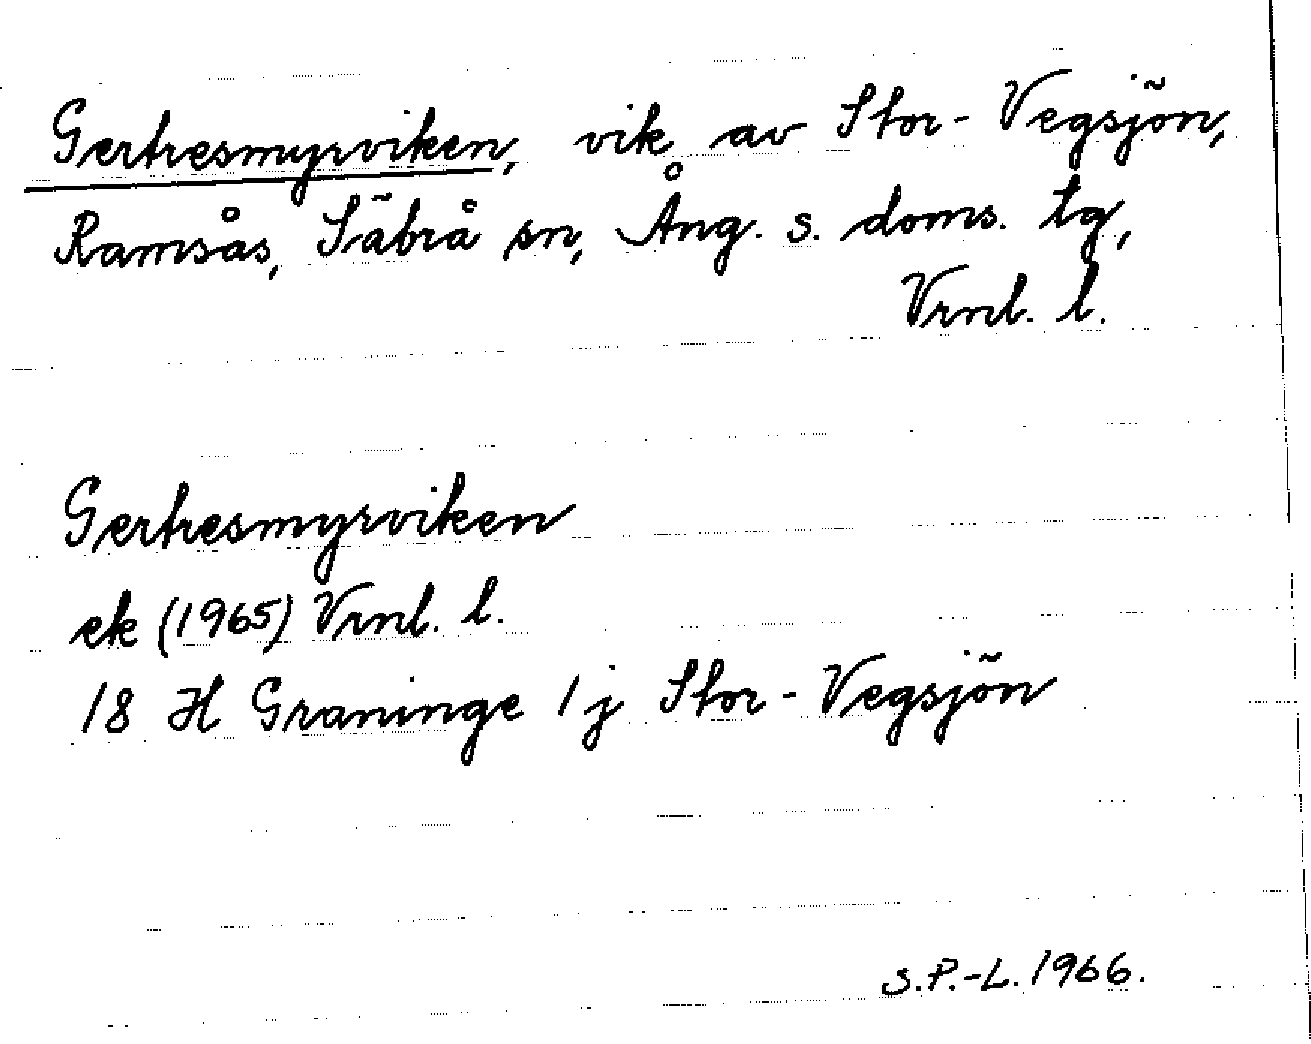 Gertresmyrviken, vik av Stor-Vegsjön,
Ramsås, Säbrå sn, Ång. s. doms. tg,
Vrnl. l.
Gertresmyrviken
ek (1965) Vrnl. l.
18 H Graninge 1 j Stor-Vegsjön
S.P.-L. 1966.